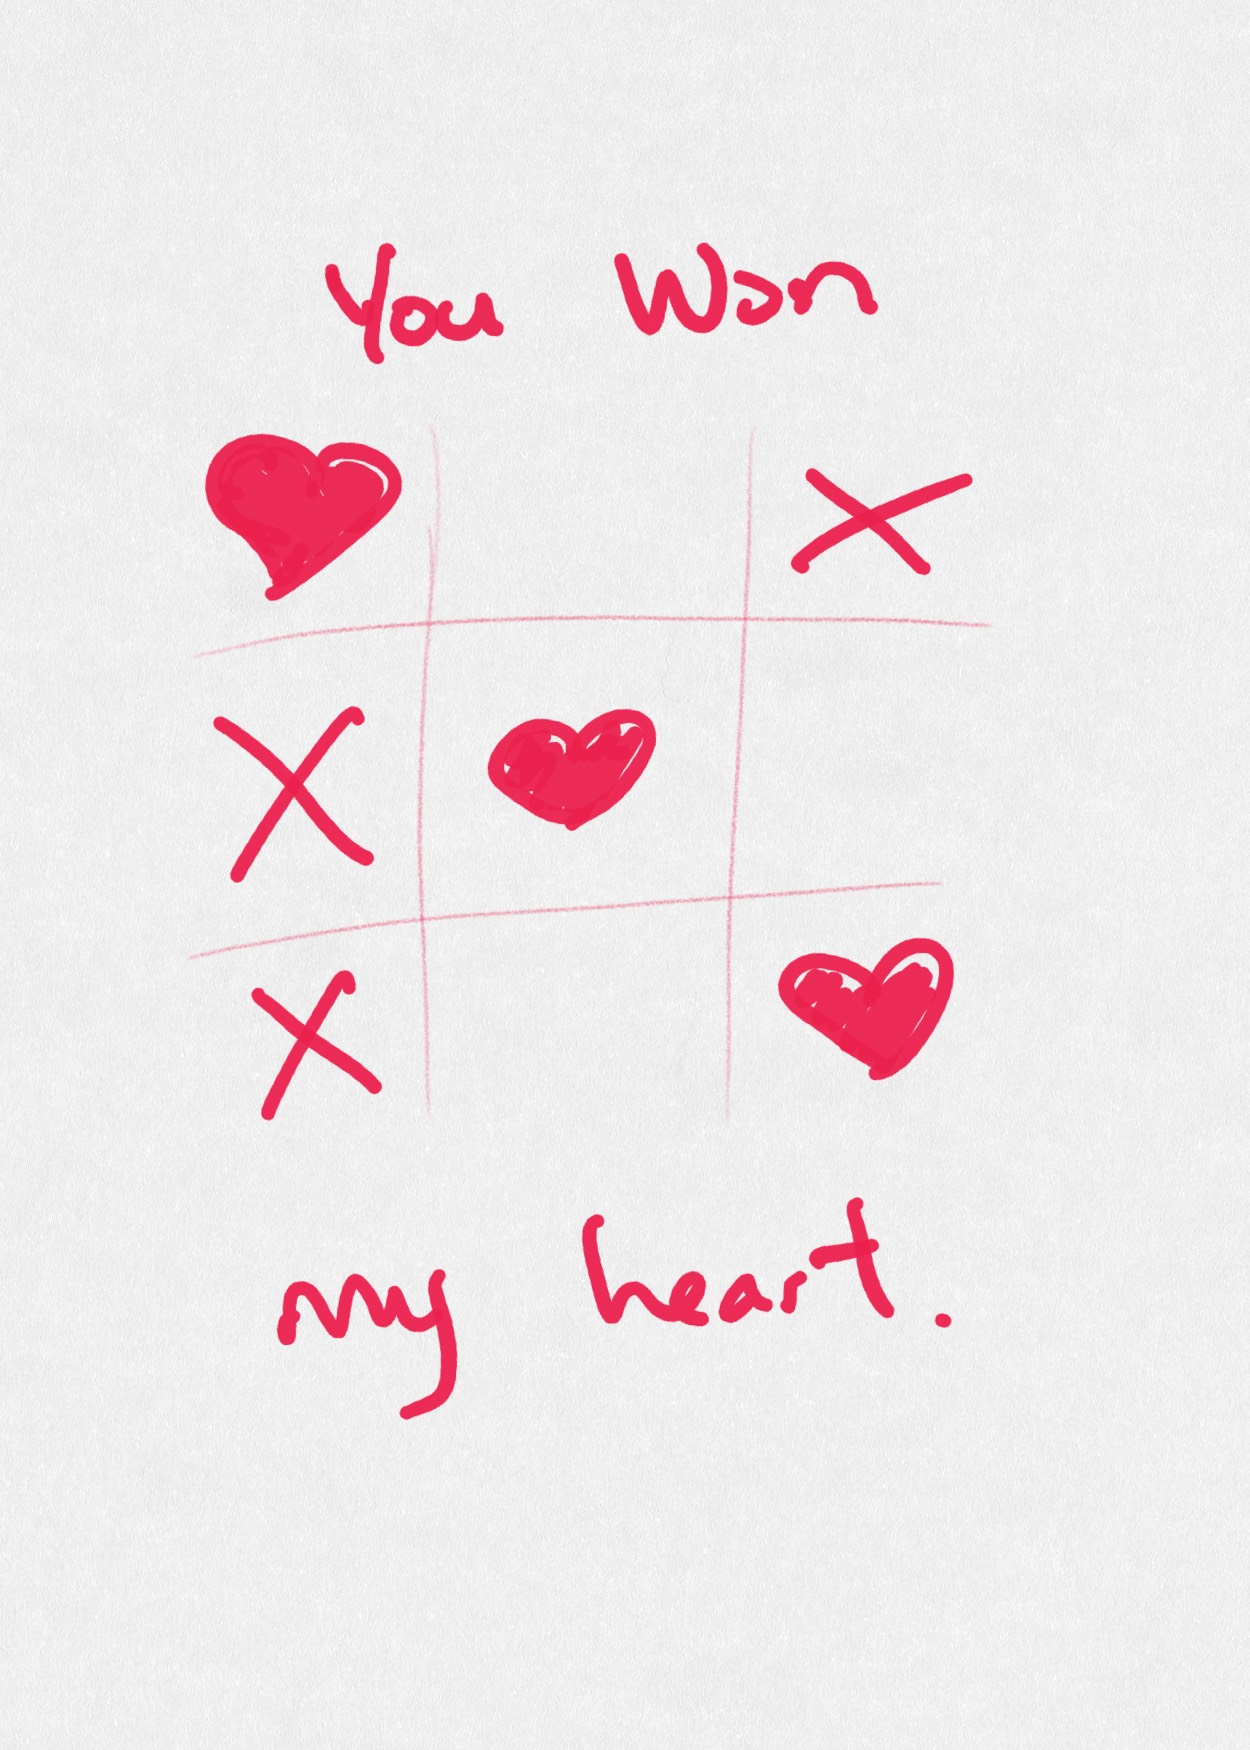 You Won
X
X
X
my heart.